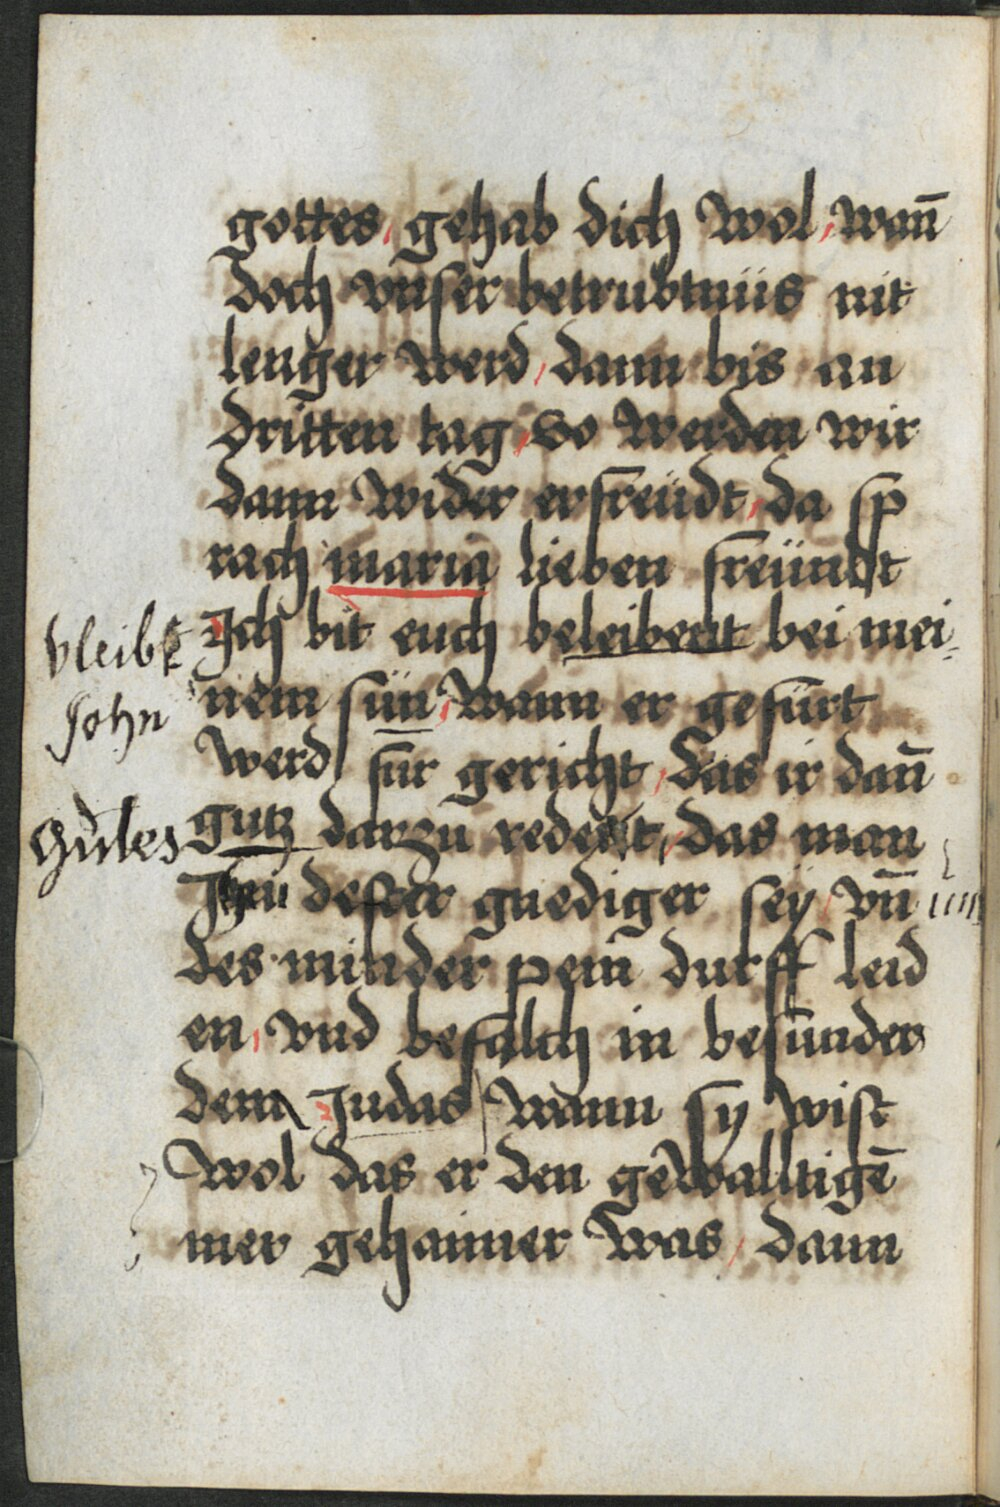 gottes, gehab dich wol, wan̄
doch vnser betrubtnüs nit
lenger werd, dann bis an
dritten tag, so werden wir
dann wider erfreüdt, da sp
rach maria lieben freündt
bleibt Ich bit euch beleibent bei mei
Sohn nem sün, wann er gefürt
werd für gericht, das ir dan̄
Gutes gutz darzu redent, das man
Im dester gnediger seÿ vn̄
des minder pein durff leid
en, vnd befalch in besunder
dem Judas / wann sy wist
wol das er den gewalltigē
mer gehaimer was, dann